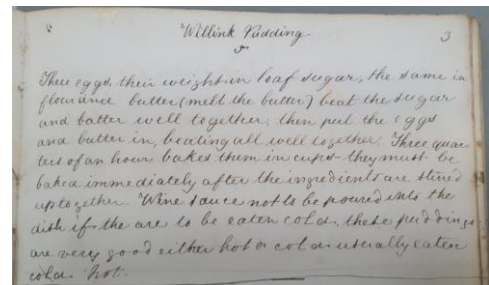 Willink Pudding 3
Three eggs, their weight in loaf sugar, the same in
flour and butter (melt the butter) beat the sugar
and batter well together, then put the eggs
and butter in, beating all well together. Three quar
ters of an hour bakes them in cups - they must be
baked immediately after the ingredients are stired
up together. Wine sauce not to be poured into the
dish if the are to be eaten cold, these puddings
are very good either hot or cold usually eaten
cold. hot.